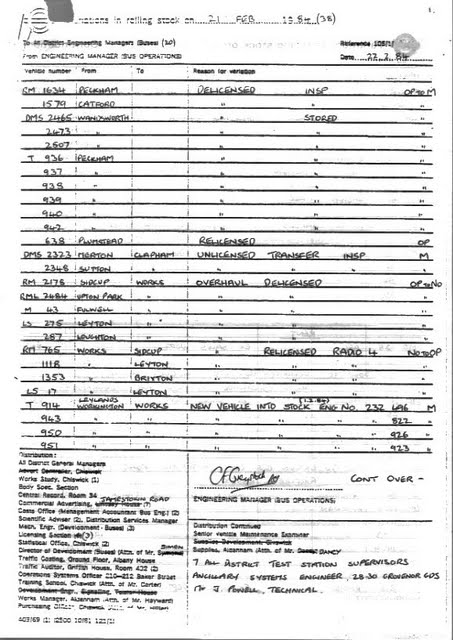 ations in rolling stock on 21 FEB 1984 (38)
1.
To All District Engineering Managers (Buses) (20)
Reference
From ENGINEERING MANAGER (BUS OPERATIONS)
Date 22.2.84
Vehicle number From To Reason for variation
RM 1634 PECKHAM DELICENSED INSP OP to M
1579 CATFORD " " "
DMS 2465 WANDSWORTH " STORED "
2473 " " " "
2507 " " " "
T 936 PECKHAM " " "
937 " " " "
938 " " " "
939 " " " "
940 " " " "
942 " " " "
638 PLUMSTEAD RELICENSED OP
DMS 2323 MERTON CLAPHAM UNLICENSED TRANSFER INSP M
2348 SUTTON " " " " "
RM 2178 SIDCUP WORKS OVERHAUL DELICENSED OP to No
RML 2484 UPTON PARK " " " "
M 43 FULWELL " " " "
LS 275 LEYTON " " " "
287 LOUGHTON " " " "
RM 765 WORKS SIDCUP " RELICENSED RADIO 4 No to OP
1118 " LEYTON " " " "
1353 " BRIXTON " " " "
LS 17 " LEYTON " " "
T 914 LEYLANDS WORKINGTON WORKS NEW VEHICLE INTO STOCK (1.2.84) ENG No. 232 LA6 M
943 " " " " 822 "
950 " " " " 926 "
951 " " " " 923 "
Distribution:
All District General Managers
Advert Controller, Chiswick
Works Study, Chiswick (1)
Body Spec. Section
Central Record, Room 34 JAMESTOWN ROAD
Commercial Advertising,
Costs Office (Management Accountant Bus Eng.) (2)
Scientific Adviser (2), Distribution Services Manager
Mech. Engr. (Development - Buses) (3)
Licensing Section
Statistical Office, Chiswick (2)
Director of Development (Buses) (Attn. of Mr.
Traffic Costing, Ground Floor, Albany House
Traffic Auditor, Griffith House, Room 402 (2)
Operations Systems Officer 210-212 Baker Street
Training School, Chiswick (Attn. of Mr. Carter)
Development Engr.
Works Manager, Aldenham (Attn. of Mr. Hayward)
Purchasing
403/69 (1)
CONT OVER -
ENGINEERING MANAGER (BUS OPERATIONS)
Distribution Continued
Senior Vehicle Maintenance Examiner
Supplies Development, Chiswick
Supplies, Aldenham (Attn. of Mr. DANCY)
7 ALL DISTRICT TEST STATION SUPERVISORS
ANCILLARY SYSTEMS ENGINEER, 28.30 GROVENOR GDS
Mr J. POWELL, TECHNICAL.